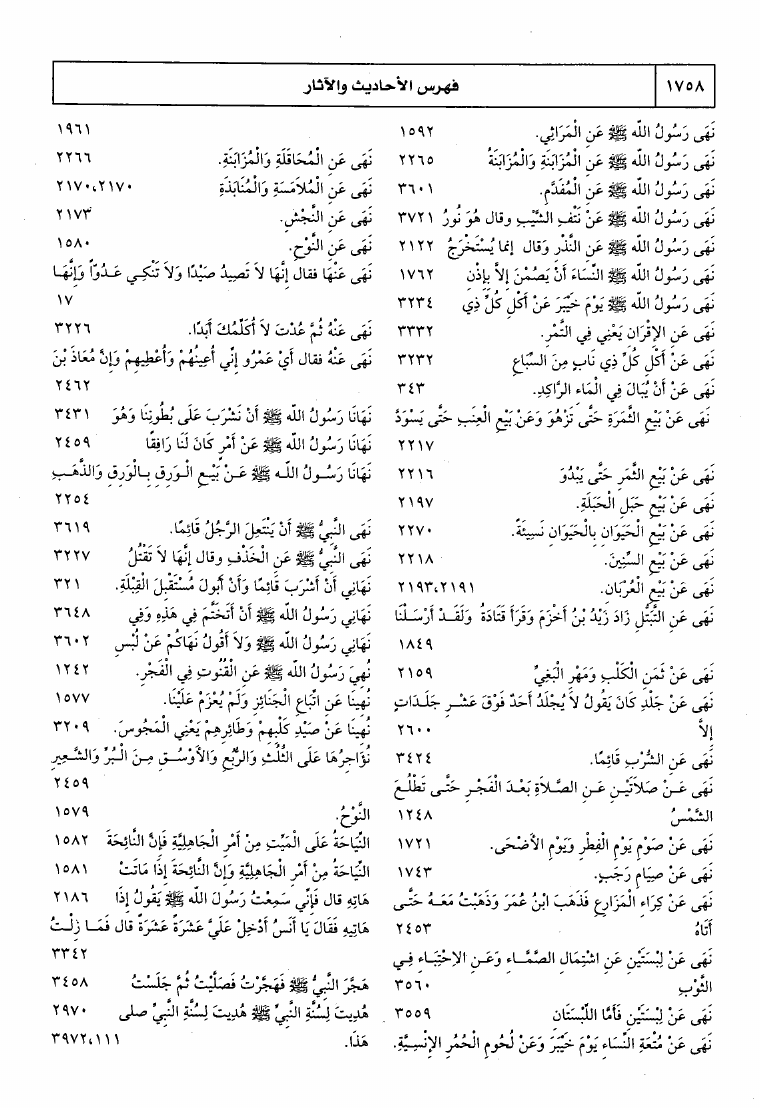 ١٧٥٨
فهرس الأحاديث والآثار
نَهَى رَسُولُ اللَّه ﷺ عَنِ الْمَرَاثِي. ١٥٩٢
نَهَى رَسُولُ اللَّه ﷺ عَنِ الْمُزَابَنَةِ وَالْمُزَابَنَةُ ٢٢٦٥
نَهَى رَسُولُ اللَّه ﷺ عَنِ الْمُفَدَّمِ. ٣٦٠١
نَهَى رَسُولُ اللَّه ﷺ عَنْ نَتْفِ الشَّيْبِ وقال هُوَ نُورُ ٣٧٢١
نَهَى رَسُولُ اللَّه ﷺ عَنِ النَّذْرِ وَقال إنما يُسْتَخْرَجُ ٢١٢٢
نَهَى رَسُولُ اللَّه ﷺ النِّسَاءَ أَنْ يَصُمْنَ إِلاَّ بِإِذْنِ ١٧٦٢
نَهَى رَسُولُ اللَّه ﷺ يَوْمَ خَيْبَرَ عَنْ أَكْلِ كُلِّ ذِي ٣٢٣٤
نَهَى عَنِ الإِقْرَانِ يَعْنِي فِي التَّمْرِ. ٣٣٣٢
نَهَى عَنْ أَكْلِ كُلِّ ذِي نَابٍ مِنَ السِّبَاعِ ٣٢٣٢
نَهَى عَنْ أَنْ يُبَالَ فِي الْمَاءِ الرَّاكِدِ. ٣٤٣
نَهَى عَنْ بَيْعِ الثَّمَرَةِ حَتَّى تَزْهُوَ وَعَنْ بَيْعِ الْعِنَبِ حَتَّى يَسْوَدَّ
٢٢١٧
نَهَى عَنْ بَيْعِ الثَّمَرِ حَتَّى يَبْدُوَ ٢٢١٦
نَهَى عَنْ بَيْعِ حَبَلِ الْحَبَلَةِ. ٢١٩٧
نَهَى عَنْ بَيْعِ الْحَيَوَانِ بِالْحَيَوَانِ نَسِيئَةً. ٢٢٧٠
نَهَى عَنْ بَيْعِ السِّنِينَ. ٢٢١٨
نَهَى عَنْ بَيْعِ الْعُرْبَانِ. ٢١٩٣،٢١٩١
نَهَى عَنِ التَّبَتُّلِ زَادَ زَيْدُ بْنُ أَخْزَمَ وَقَرَأَ قَتَادَةُ وَلَقَدْ أَرْسَلْنَا
١٨٤٩
نَهَى عَنْ ثَمَنِ الْكَلْبِ وَمَهْرِ الْبَغِيِّ ٢١٥٩
نَهَى عَنْ جَلْدِ كَانَ يَقُولُ لاَ يُجْلَدُ أَحَدٌ فَوْقَ عَشْرِ جَلَدَاتٍ
إِلاَّ ٢٦٠٠
نَهَى عَنِ الشُّرْبِ قَائِمًا. ٣٤٢٤
نَهَى عَنْ صَلاَتَيْنِ عَنِ الصَّلاَةِ بَعْدَ الْفَجْرِ حَتَّى تَطْلُعَ
الشَّمْسُ ١٢٤٨
نَهَى عَنْ صَوْمِ يَوْمِ الْفِطْرِ وَيَوْمِ الأَضْحَى. ١٧٢١
نَهَى عَنْ صِيَامِ رَجَبٍ. ١٧٤٣
نَهَى عَنْ كِرَاءِ الْمَزَارِعِ فَذَهَبَ ابْنُ عُمَرَ وَذَهَبْتُ مَعَهُ حَتَّى
أَتَاهُ ٢٤٥٣
نَهَى عَنْ لِبْسَتَيْنِ عَنِ اشْتِمَالِ الصَّمَّاءِ وَعَنِ الاِحْتِبَاءِ فِي
الثَّوْبِ ٣٥٦٠
نَهَى عَنْ لِبْسَتَيْنِ فَأَمَّا اللِّبْسَتَانِ ٣٥٥٩
نَهَى عَنْ مُتْعَةِ النِّسَاءِ يَوْمَ خَيْبَرَ وَعَنْ لُحُومِ الْحُمُرِ الإِنْسِيَّةِ.
١٩٦١
نَهَى عَنِ الْمُحَاقَلَةِ وَالْمُزَابَنَةِ. ٢٢٦٦
نَهَى عَنِ الْمُلاَمَسَةِ وَالْمُنَابَذَةِ ٢١٧٠،٢١٧٠
نَهَى عَنِ النَّجْشِ. ٢١٧٣
نَهَى عَنِ النَّوْحِ. ١٥٨٠
نَهَى عَنْهَا فقال إِنَّهَا لاَ تَصِيدُ صَيْدًا وَلاَ تَنْكِي عَدُوًّا وَإِنَّهَا
١٧
نَهَى عَنْهُ ثُمَّ عُدْتَ لاَ أُكَلِّمُكَ أَبَدًا. ٣٢٢٦
نَهَى عَنْهُ فقال أَيْ عَمْرُو إِنِّي أُعِينُهُمْ وَأُعْطِيهِمْ وَإِنَّ مُعَاذَ بْنَ
٢٤٦٢
نَهَانَا رَسُولُ اللَّه ﷺ أَنْ نَشْرَبَ عَلَى بُطُونِنَا وَهُوَ ٣٤٣١
نَهَانَا رَسُولُ اللَّه ﷺ عَنْ أَمْرٍ كَانَ لَنَا رَافِقًا ٢٤٥٩
نَهَانَا رَسُولُ اللَّه ﷺ عَنْ بَيْعِ الْوَرِقِ بِالْوَرِقِ وَالذَّهَبِ
٢٢٥٤
نَهَى النَّبِيُّ ﷺ أَنْ يَنْتَعِلَ الرَّجُلُ قَائِمًا. ٣٦١٩
نَهَى النَّبِيُّ ﷺ عَنِ الْخَذْفِ وقال إِنَّهَا لاَ تَقْتُلُ ٣٢٢٧
نَهَانِي أَنْ أَشْرَبَ قَائِمًا وَأَنْ أَبُولَ مُسْتَقْبِلَ الْقِبْلَةِ. ٣٢١
نَهَانِي رَسُولُ اللَّه ﷺ أَنْ أَتَخَتَّمَ فِي هَذِهِ وَفِي ٣٦٤٨
نَهَانِي رَسُولُ اللَّه ﷺ وَلاَ أَقُولُ نَهَاكُمْ عَنْ لُبْسِ ٣٦٠٢
نُهِيَ رَسُولُ اللَّه ﷺ عَنِ الْقُنُوتِ فِي الْفَجْرِ. ١٢٤٢
نُهِينَا عَنِ اتِّبَاعِ الْجَنَائِزِ وَلَمْ يُعْزَمْ عَلَيْنَا. ١٥٧٧
نُهِينَا عَنْ صَيْدِ كَلْبِهِمْ وَطَائِرِهِمْ يَعْنِي الْمَجُوسَ. ٣٢٠٩
نُؤَاجِرُهَا عَلَى الثُّلُثِ وَالرُّبُعِ وَالأَوْسُقِ مِنَ الْبُرِّ وَالشَّعِيرِ
٢٤٥٩
النَّوْحُ. ١٥٧٩
النِّيَاحَةُ عَلَى الْمَيِّتِ مِنْ أَمْرِ الْجَاهِلِيَّةِ فَإِنَّ النَّائِحَةَ ١٥٨٢
النِّيَاحَةُ مِنْ أَمْرِ الْجَاهِلِيَّةِ وَإِنَّ النَّائِحَةَ إِذَا مَاتَتْ ١٥٨١
هَاتِهِ قال فَإِنِّي سَمِعْتُ رَسُولَ اللَّه ﷺ يَقُولُ إِذَا ٢١٨٦
هَاتِيهِ فَقَالَ يَا أَنَسُ أَدْخِلْ عَلَيَّ عَشَرَةً عَشَرَةً قال فَمَا زِلْتُ
٣٣٤٢
هَجَّرَ النَّبِيُّ ﷺ فَهَجَّرْتُ فَصَلَّيْتُ ثُمَّ جَلَسْتُ ٣٤٥٨
هُدِيتَ لِسُنَّةِ النَّبِيِّ ﷺ هُدِيتَ لِسُنَّةِ النَّبِيِّ صلى ٢٩٧٠
هَذَا. ٣٩٧٢،١١١